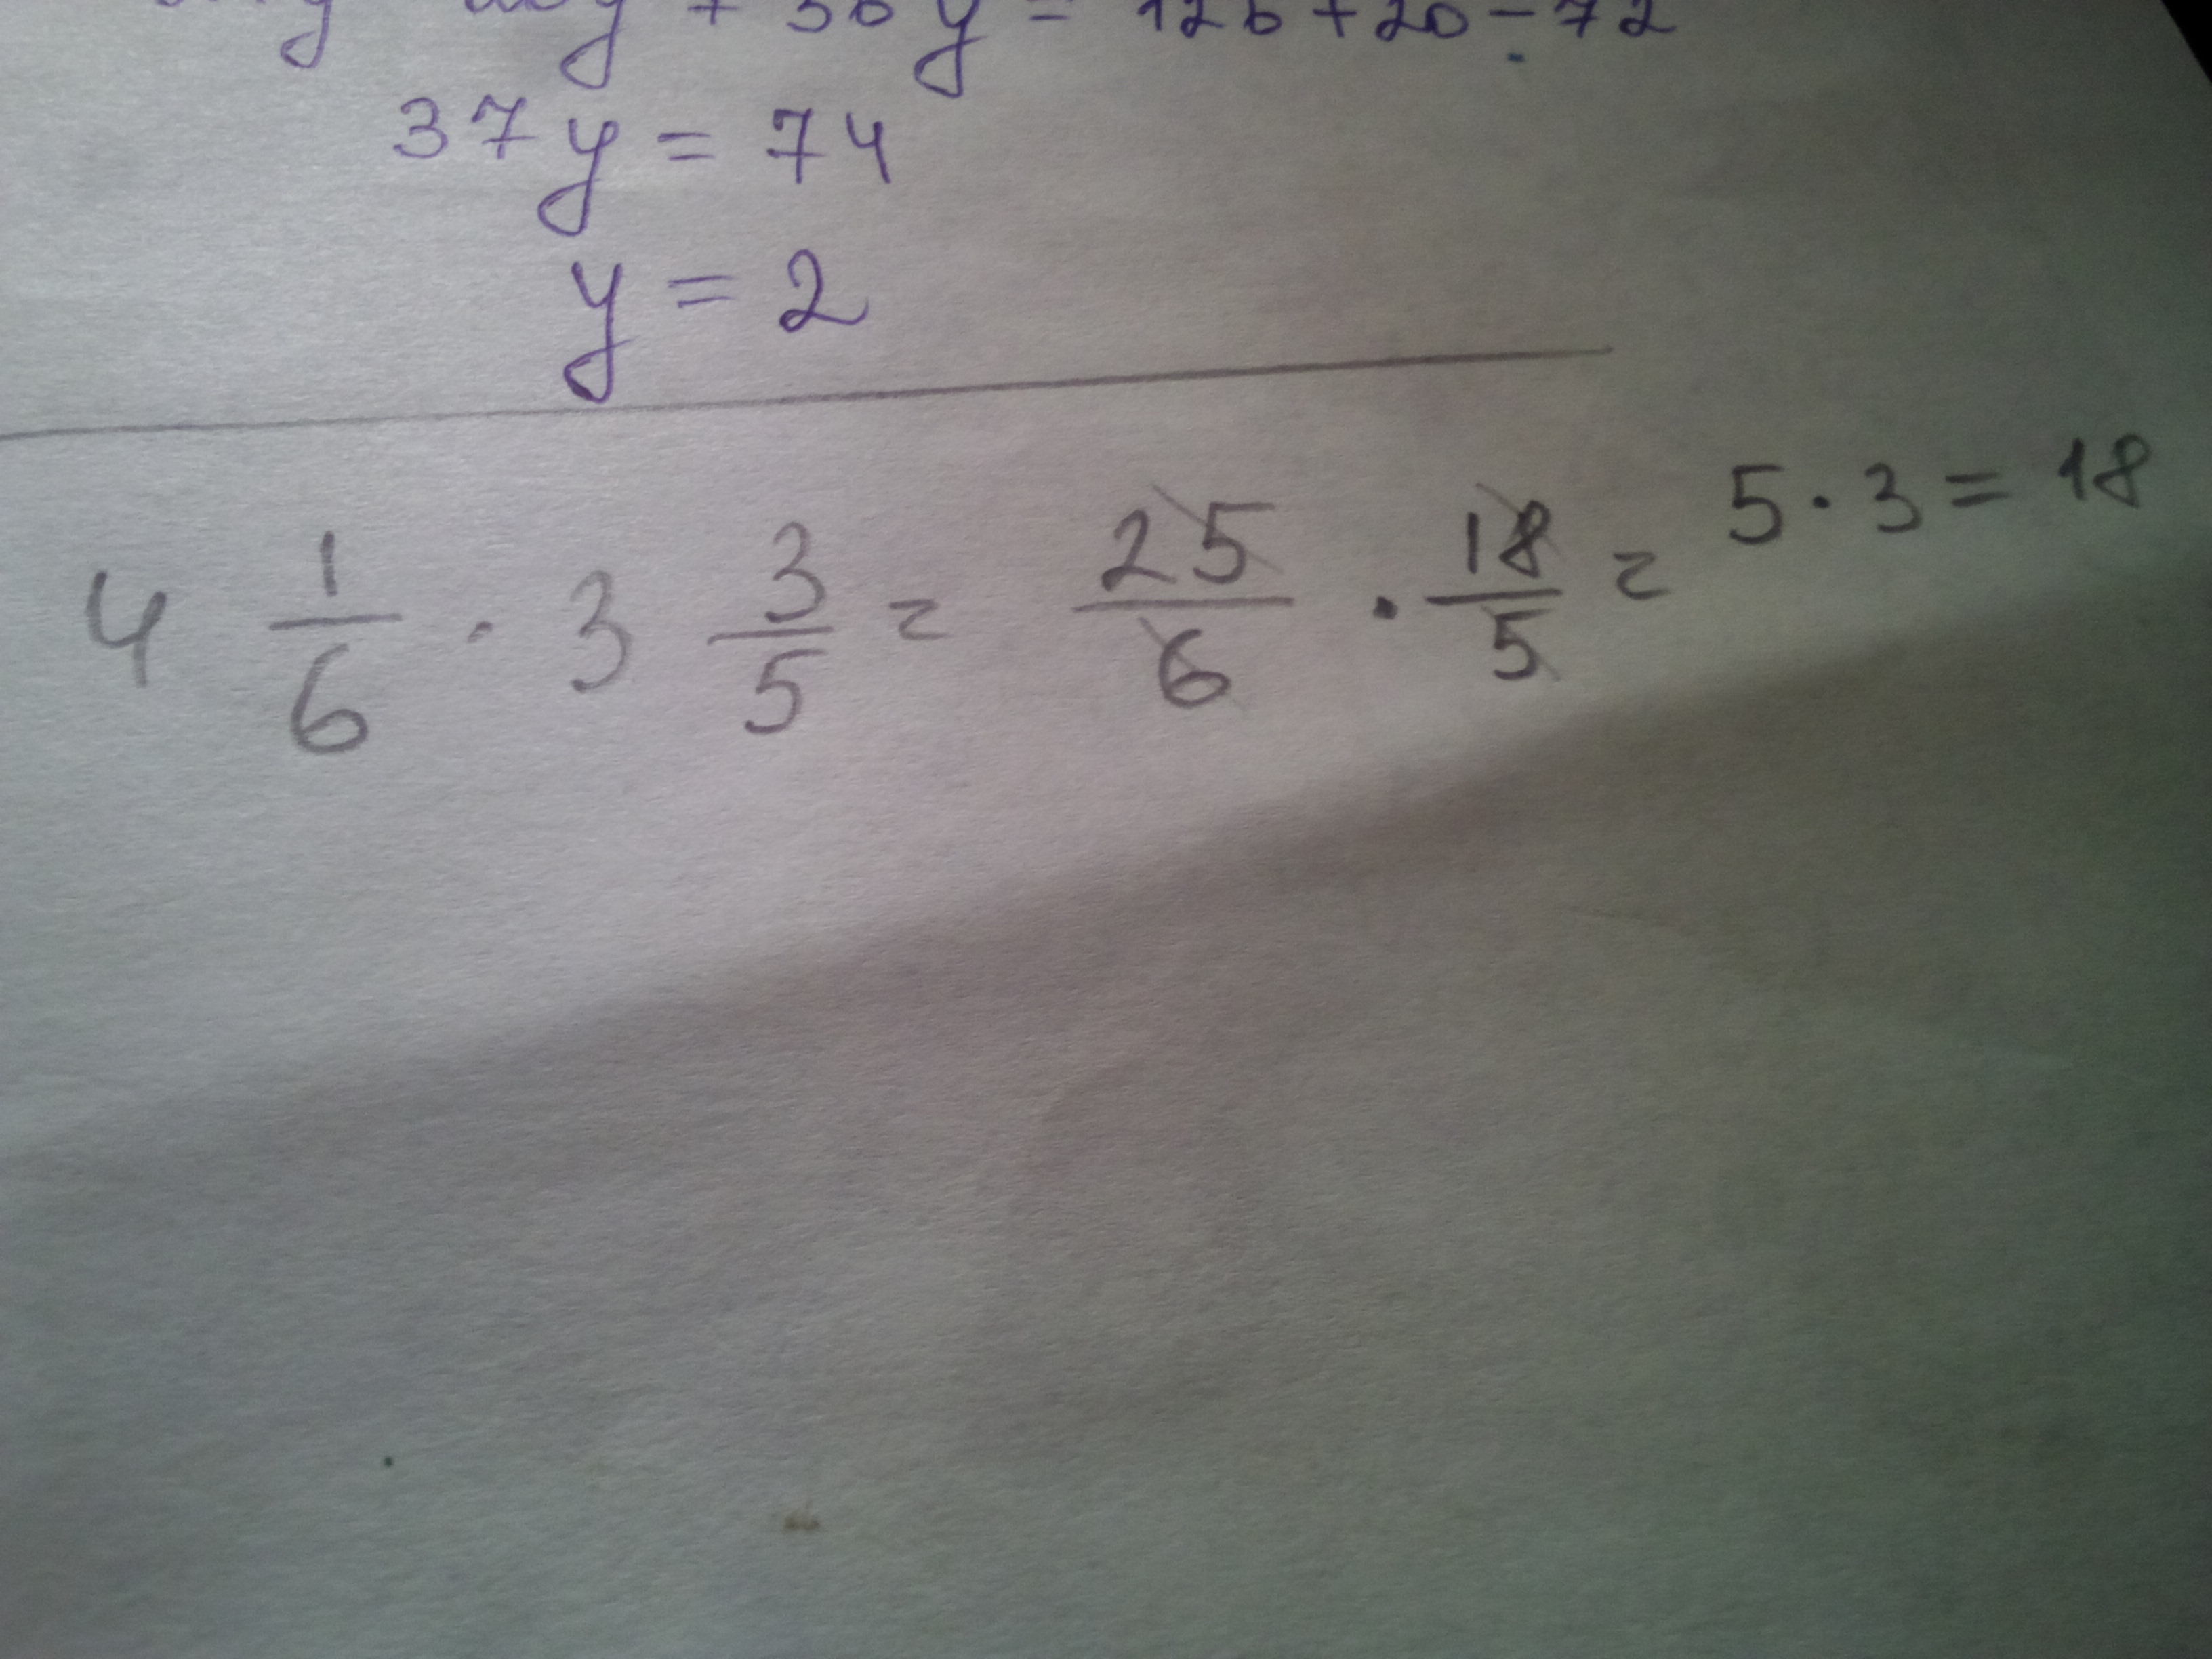 y y + 36 y = 126 + 20 - 72
37y = 74
y = 2
4 1/6 · 3 3/5 = 25/6 · 18/5 = 5 · 3 = 18